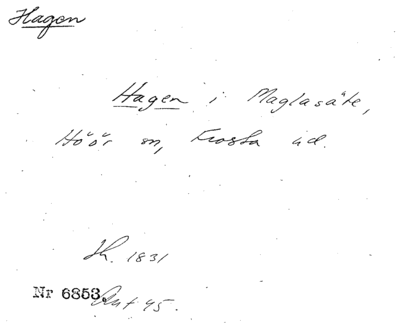 Hagen
Hagen i Maglasäte,
Höör sn, Frosta hd.
Jh. 1831
Nr 6853 Ant 45.